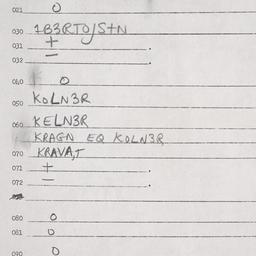 021 O
030 1B3RTO/StN
031 + .
032 — .
040 O
050 KOLN3R
060 KELN3R
KRAGN EQ KOLN3R
070 KRAVA,T
071 + .
072 — .
080 O
081 O
090 O